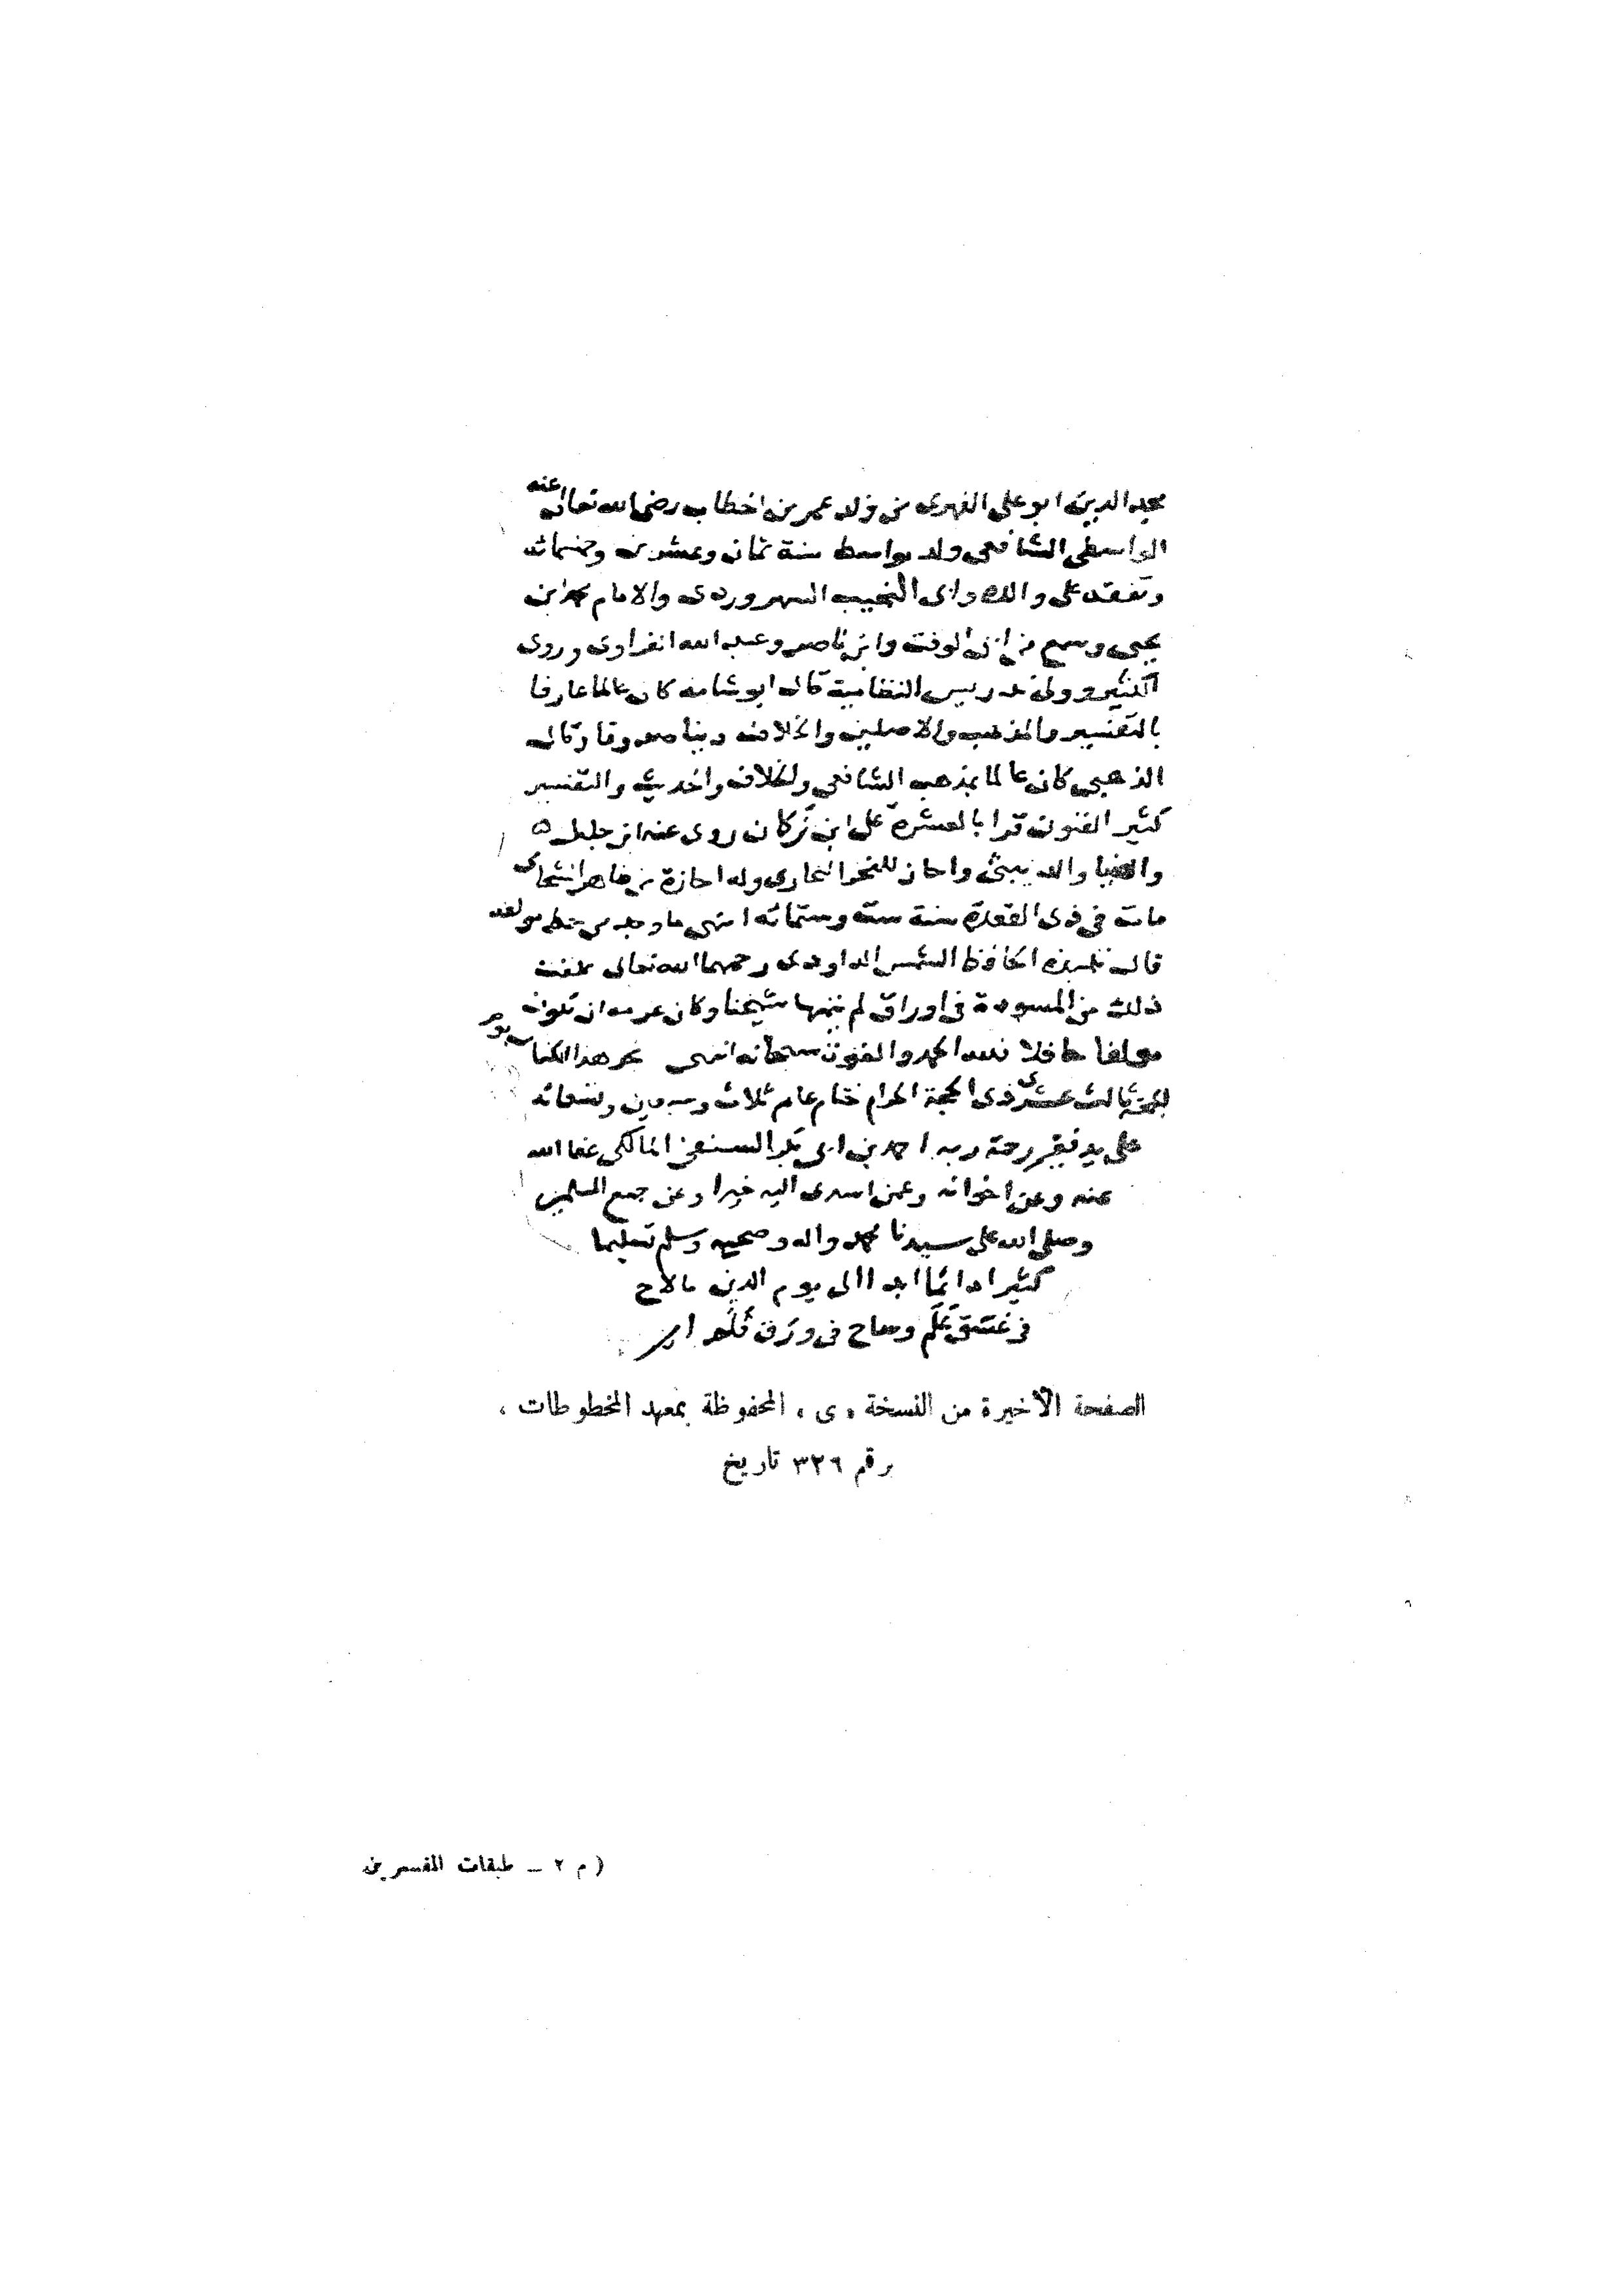 مجد الدين ابو على الفهرى من ولد عمر بن الخطاب رضى الله تعالى عنه
الواسطى الشافعى ولد بواسط سنة ثمان وعشرين وخمسمائه
وتفقه على والده وابى النجيب السهروردى والامام محمد ابن
يحيى وسمع من ابى الوقت وابن ناصر وعبد الله الفراوى وروى
الكثير وولى تدريس النظامية قال ابو شامه كان عالما عارفا
بالتفسير والمذهب والاصلين والخلاف دينا صدوقا وقال
الذهبى كان عالما بمذهب الشافعى والخلاف والحديث والتفسير
كثير الفنون قرا بالعشرة على ابن تركان روى عنه ابن خليل
والضيا والدبيثى واجاز للفخر البخارى وله اجازة من زاهر الشحامى
مات فى ذى القعدة سنة ست وستمائه انتهى ما وجد من خط مولفه
قال تلميذه الحافظ الشمس الداودى رحمهما الله تعالى علقت
ذلك من المسودة فى اوراق لم يتمها شيخنا وكان عزمه ان تكون
مولفا حافلا فلله الحمد والفوت سبحانه انتهى نجز هذا الكتاب يوم
ثالث عشرى ذى الحجة الحرام ختام عام ثلاث وسبعين وتسعمائه
على يد فقير رحمة ربه احمد بن ابى بكر المالكى عفا الله
عنه وعن اخوانه وعمن اسدى اليه خيرا وعن جميع المسلمين
وصلى الله على سيدنا محمد واله وصحبه وسلم تسليما
كثيرا دائما ابدا الى يوم الدين مالاح
فى غسق علم وساح فى ورق قلم
الصفحة الأخيرة من النسخة «ى» المحفوظة بمعهد المخطوطات،
برقم ٣٢٦ تاريخ
(م ٢ – طبقات المفسرين